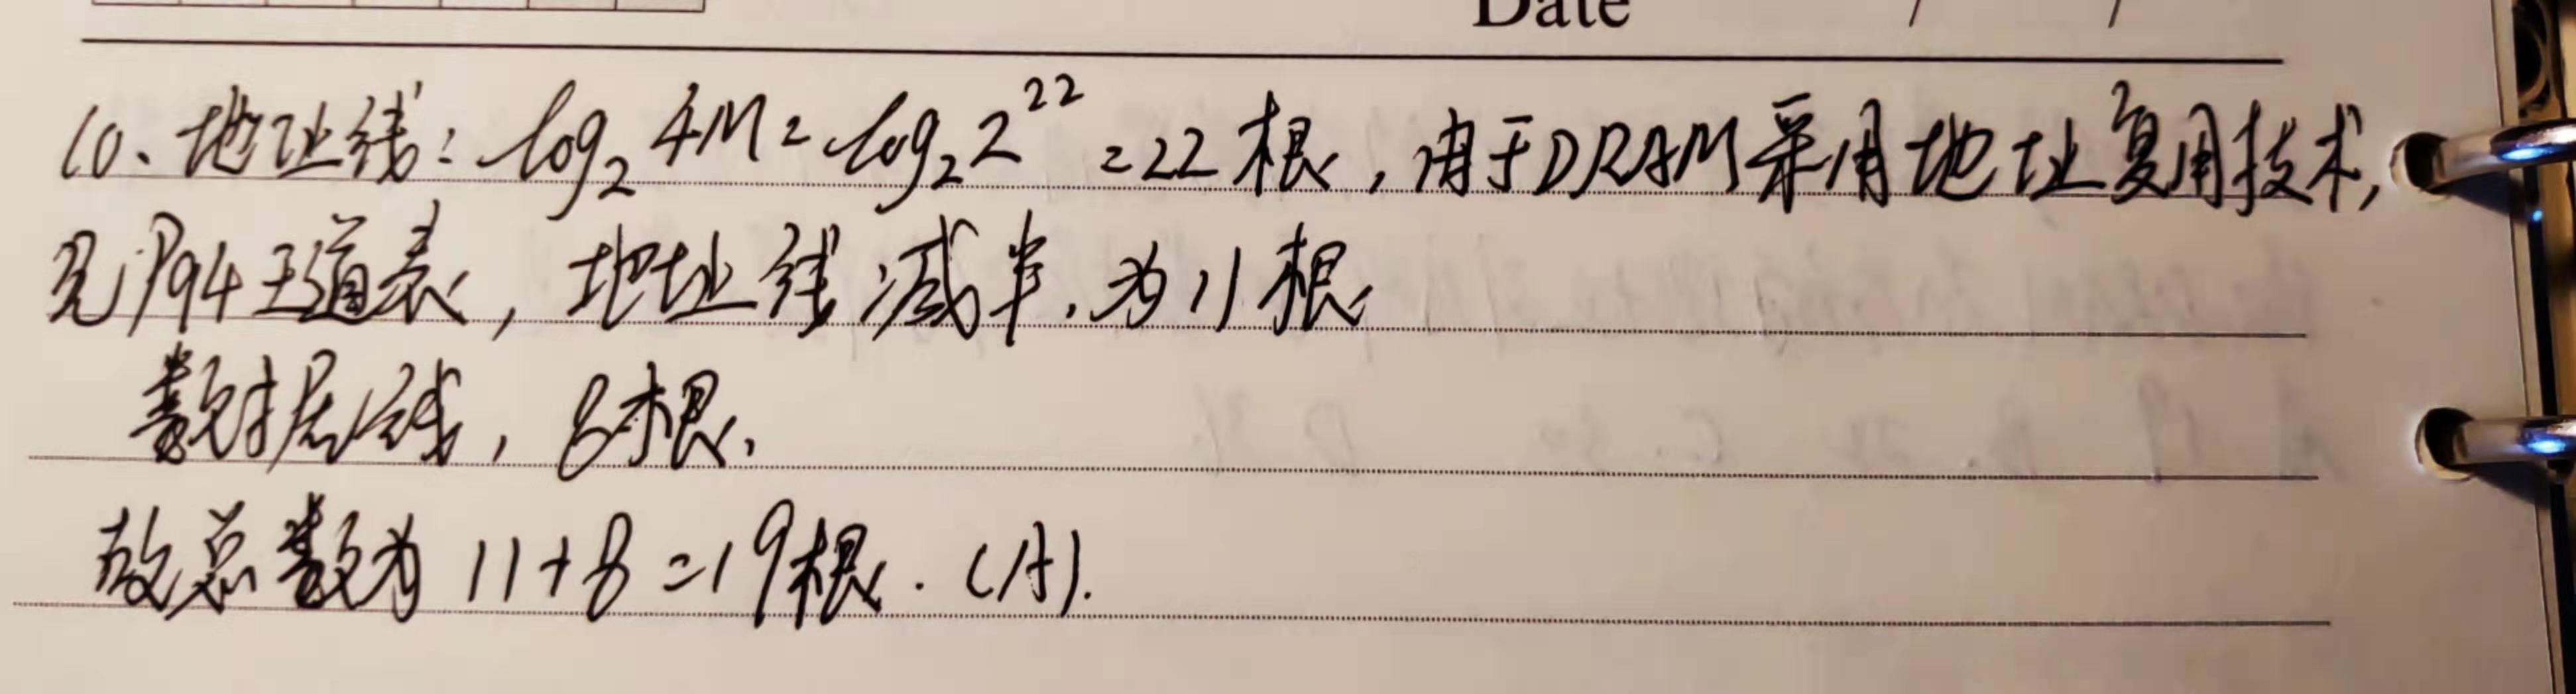 Date / /
10、地址线：log₂4M=log₂2²²=22根，由于DRAM采用地址复用技术，
见P94王道表，地址线减半，为11根
数据线，8根，
故总数为 11+8=19根.（A）.